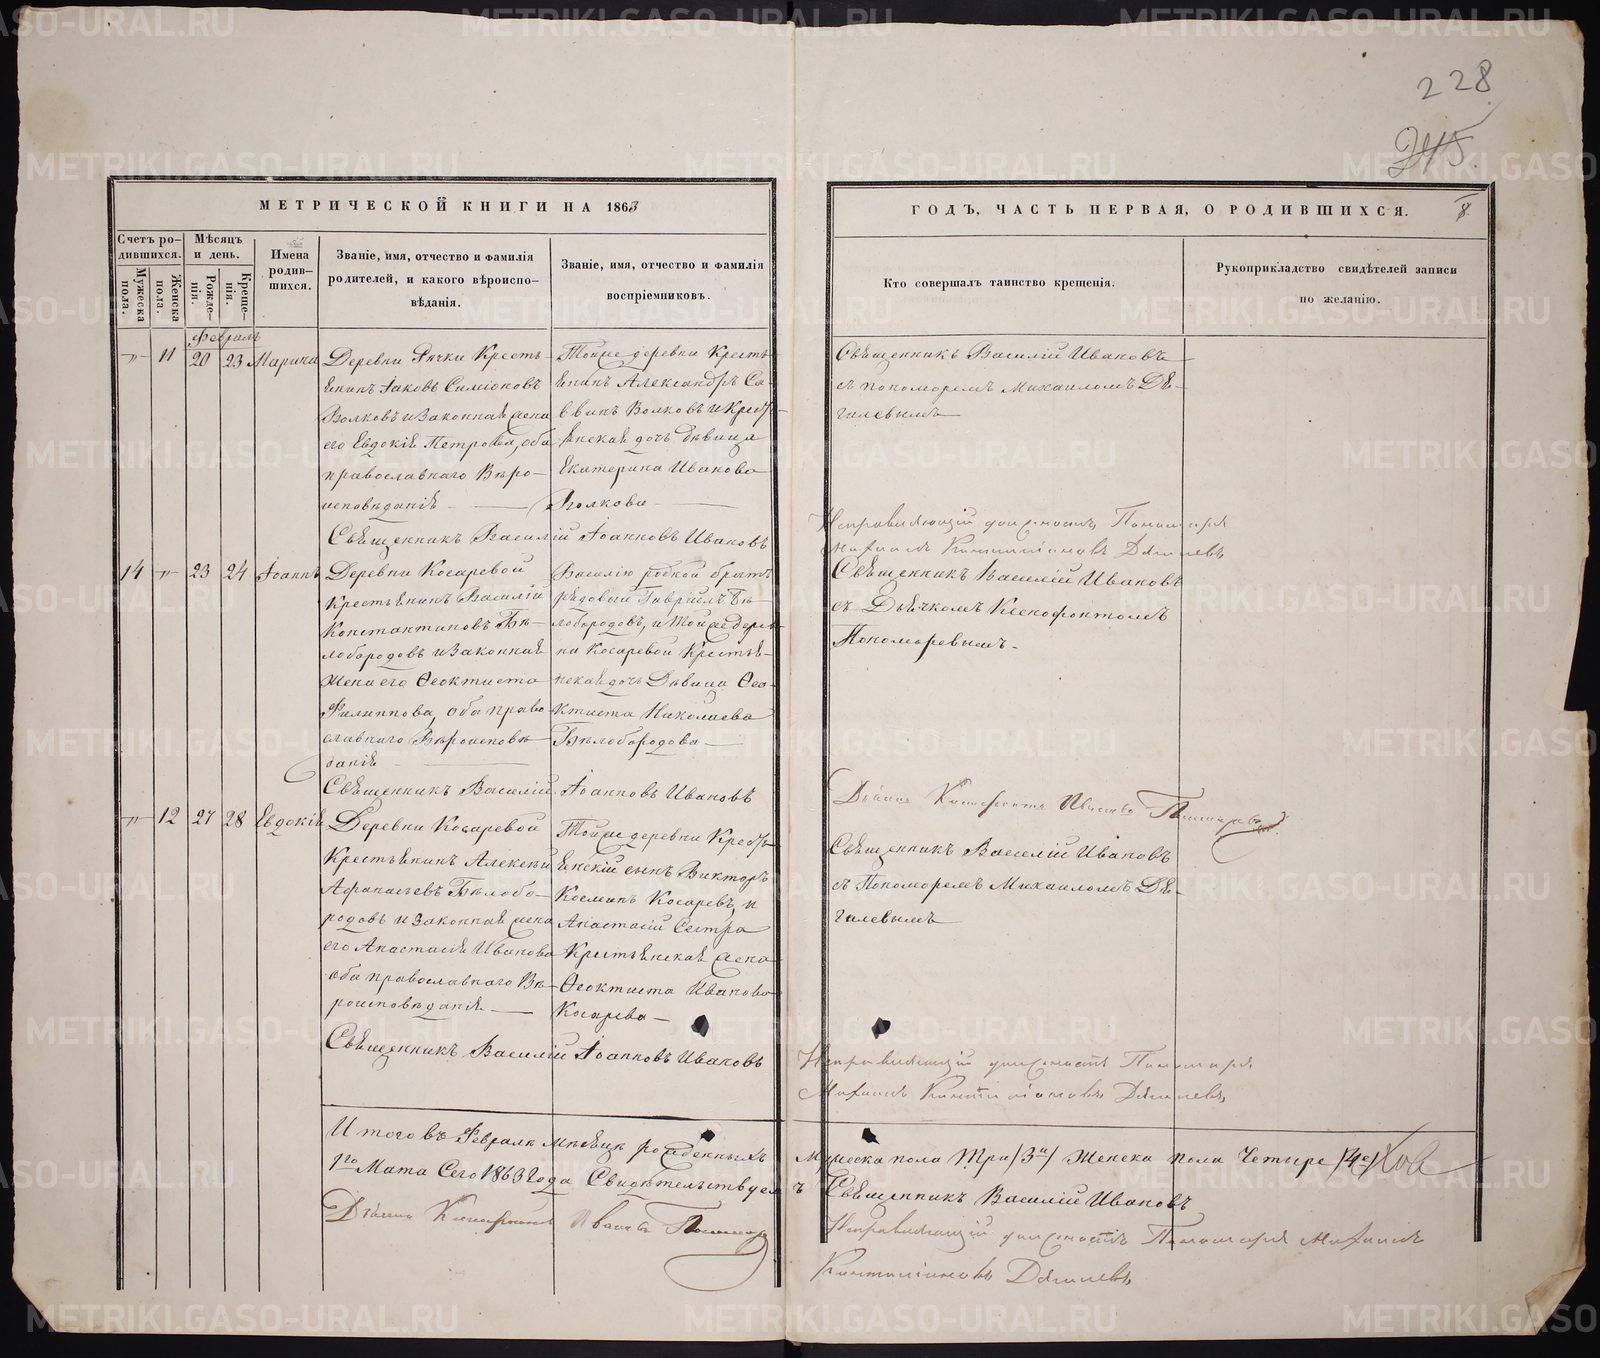 228
245
МЕТРИЧЕСКОЙ КНИГИ НА 1863
ГОДЪ, ЧАСТЬ ПЕРВАЯ, О РОДИВШИХСЯ.
8
Счетъ родившихся.
Мужеска пола.
Женска пола.
Мѣсяцъ и день.
Рожденія.
Крещенія.
Имена родившихся.
Званіе, имя, отчество и фамилія
родителей, и какого вѣроиспо-
вѣданія.
Званіе, имя, отчество и фамилія
воспріемниковъ.
Кто совершалъ таинство крещенія.
Рукоприкладство свидѣтелей записи
по желанію.
Февраль
11 20 23 Марина
Деревни Крестья-
янинъ Іаковъ Симіоновъ
Волковъ и Законная жена
его Евдокія Петрова, оба
православнаго Вѣро-
исповѣданія
Тойже деревни Кресть-
янинъ Александръ Са-
ввинъ Волковъ и Крест-
янская дочь дѣвица
Екатерина Иванова
Волкова
Священникъ Василій Ивановъ
съ пономоремъ Михаиломъ Дя-
гилевымъ
Священникъ Василій Іоанновъ Ивановъ
Исправляющій должность Пономаря
Михаилъ Дягилевъ
14 23 24 Іоаннъ
Деревни Косаревой
Крестьянинъ Василій
Константиновъ Бѣ-
лобородовъ и Законная
жена его Ѳеоктиста
Филиппова, оба право
славнаго Вѣроисповѣ
данія
Василію родной братъ
рядовый Гавріилъ Бѣ-
лобородовъ, и тойже дерев-
ни Косаревой Крестья-
нская дочь Дѣвица Ѳео-
ктиста Николаева
Бѣлобородова
Священникъ Василій Ивановъ
съ Дьячкомъ Ксенофонтомъ
Пономоревымъ.
Священникъ Василій Іоанновъ Ивановъ
12 27 28 Евдокія
Деревни Косаревой
Крестьянинъ Алексѣй
Афанасьевъ Бѣлобо-
родовъ и Законная жена
его Анастасія Иванова
оба православнаго Вѣ-
роисповѣданія
Тойже деревни Крестъ-
янскій сынъ Викторъ
Косминъ Косаревъ, и
Анастасіи Сестра
Крестьянская жена
Ѳеоктиста Иванова
Косарева
Священникъ Василій Ивановъ
съ Пономоремъ Михаиломъ Дя-
гилевымъ
Священникъ Василій Іоанновъ Ивановъ
Исправляющій должность Пономаря
Михаилъ Дягилевъ
Итого въ Февралѣ мѣсяцѣ рожденныхъ Мужеска пола три /3и/ Женска пола Четыре /4е/
1го Марта Сего 1863 года Свидѣтельствуемъ Священникъ Василій Ивановъ
Исправляющій должность Пономаря Михаилъ
Дягилевъ